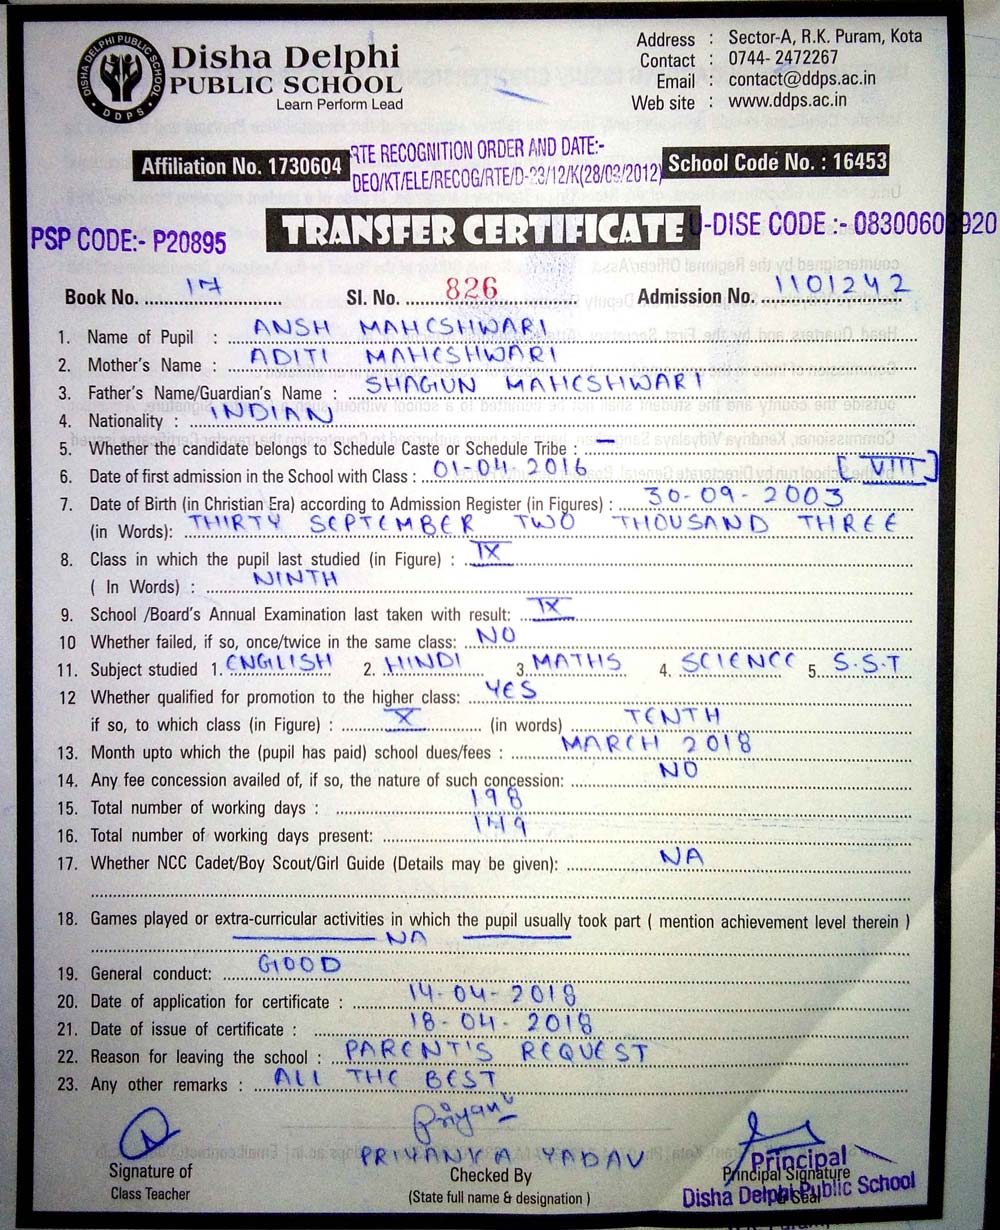 DISHA DELPHI PUBLIC SCHOOL
DDPS
Disha Delphi
PUBLIC SCHOOL
Learn Perform Lead
Address : Sector-A, R.K. Puram, Kota
Contact : 0744- 2472267
Email : contact@ddps.ac.in
Web site : www.ddps.ac.in
Affiliation No. 1730604 RTE RECOGNITION ORDER AND DATE:- School Code No. : 16453
DEO/KT/ELE/RECOG/RTE/D-23/12/K(28/03/2012)
PSP CODE:- P20895 TRANSFER CERTIFICATE U-DISE CODE :- 08300603920
Book No. 17 Sl. No. 826 Admission No. 1101242
1. Name of Pupil : ANSH MAHESHWARI
2. Mother's Name : ADITI MAHESHWARI
3. Father's Name/Guardian's Name SHAGUN MAHESHWARI
4. Nationality : INDIAN
5. Whether the candidate belongs to Schedule Caste or Schedule Tribe : –
6. Date of first admission in the School with Class : 01-04-2016 [VIII]
7. Date of Birth (in Christian Era) according to Admission Register (in Figures) : 30-09-2003
(in Words): THIRTY SEPTEMBER TWO THOUSAND THREE
8. Class in which the pupil last studied (in Figure) : IX
( In Words) : NINTH
9. School /Board's Annual Examination last taken with result: IX
10 Whether failed, if so, once/twice in the same class: NO
11. Subject studied 1. ENGLISH 2. HINDI 3. MATHS 4. SCIENCE 5. S.S.T
12 Whether qualified for promotion to the higher class: YES
if so, to which class (in Figure) : X (in words) TENTH
13. Month upto which the (pupil has paid) school dues/fees : MARCH 2018
14. Any fee concession availed of, if so, the nature of such concession: NO
15. Total number of working days : 198
16. Total number of working days present: 149
17. Whether NCC Cadet/Boy Scout/Girl Guide (Details may be given): NA
18. Games played or extra-curricular activities in which the pupil usually took part ( mention achievement level therein )
NA
19. General conduct: GOOD
20. Date of application for certificate : 14-04-2018
21. Date of issue of certificate : 18-04-2018
22. Reason for leaving the school : PARENT'S REQUEST
23. Any other remarks : ALL THE BEST
Priyanka
PRIYANKA YADAV
Signature of
Class Teacher
Checked By
(State full name & designation )
Principal
Principal Signature
& Seal
Disha Delphi Public School